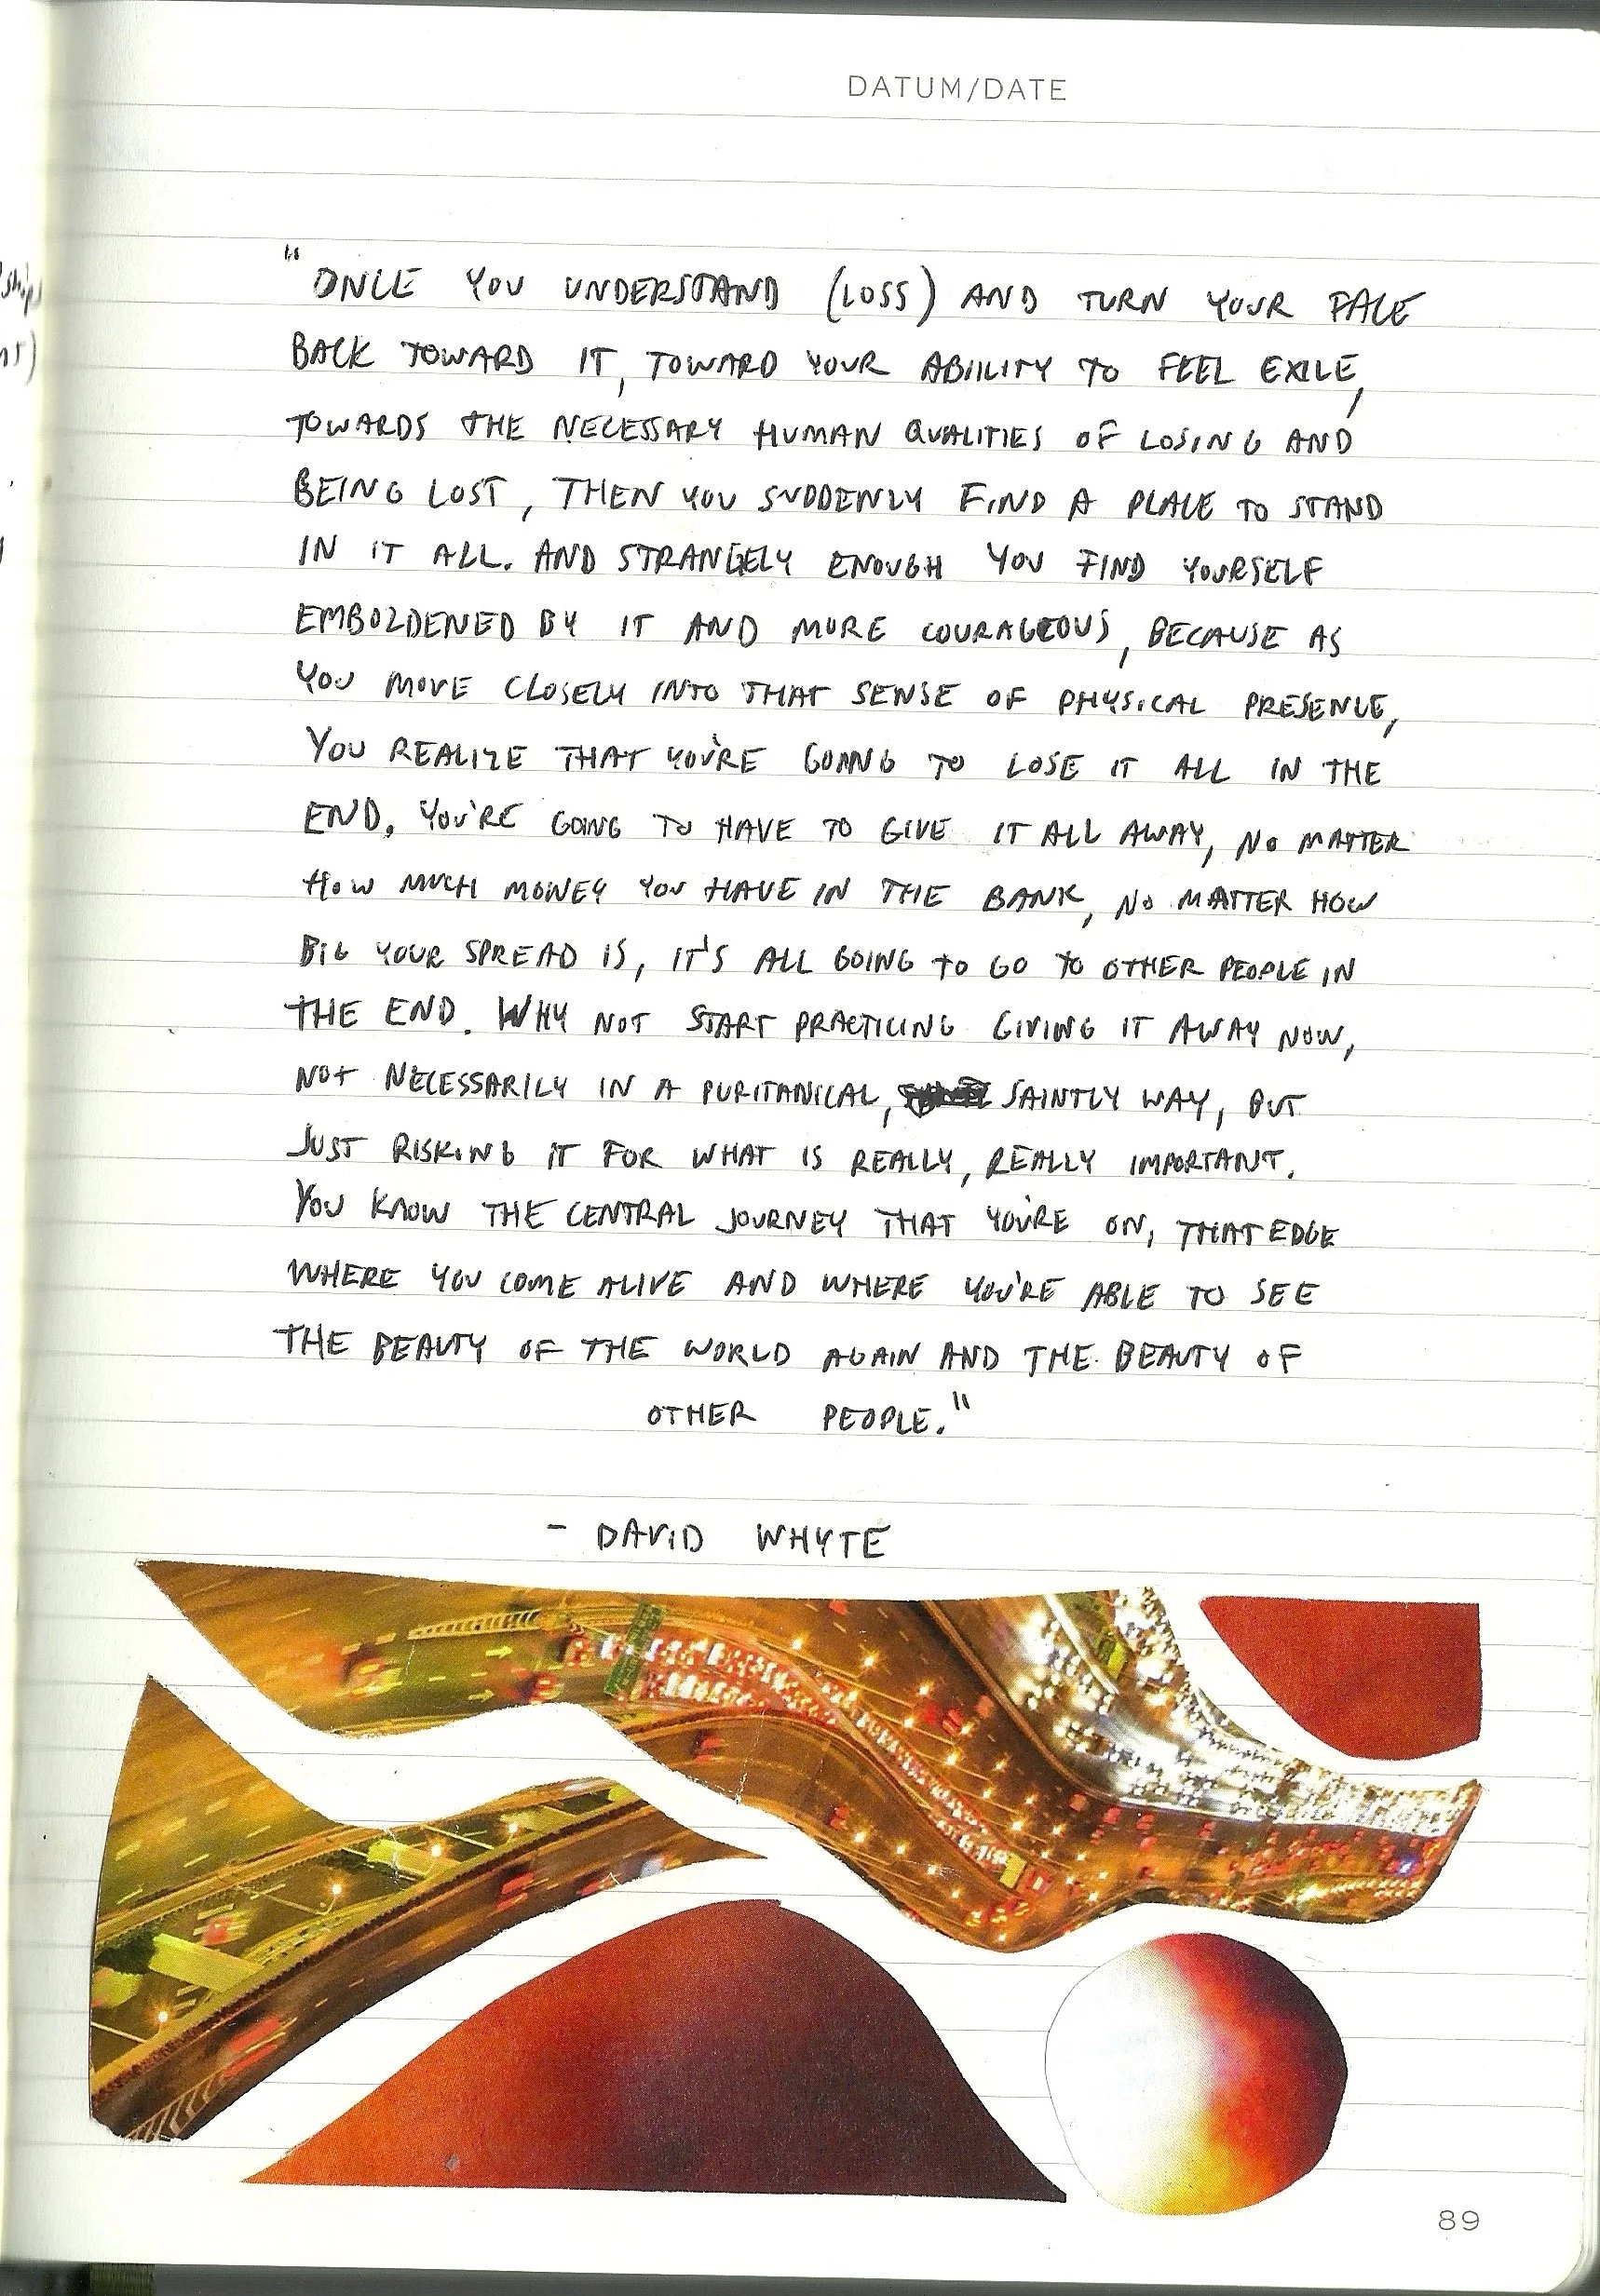 DATUM/DATE
"ONCE YOU UNDERSTAND (LOSS) AND TURN YOUR FACE
BACK TOWARD IT, TOWARD YOUR ABILITY TO FEEL EXILE,
TOWARDS THE NECESSARY HUMAN QUALITIES OF LOSING AND
BEING LOST, THEN YOU SUDDENLY FIND A PLACE TO STAND
IN IT ALL. AND STRANGELY ENOUGH YOU FIND YOURSELF
EMBOLDENED BY IT AND MORE COURAGEOUS, BECAUSE AS
YOU MOVE CLOSELY INTO THAT SENSE OF PHYSICAL PRESENCE,
YOU REALIZE THAT YOU'RE GOING TO LOSE IT ALL IN THE
END. YOU'RE GOING TO HAVE TO GIVE IT ALL AWAY, NO MATTER
HOW MUCH MONEY YOU HAVE IN THE BANK, NO MATTER HOW
BIG YOUR SPREAD IS, IT'S ALL GOING TO GO TO OTHER PEOPLE IN
THE END. WHY NOT START PRACTICING GIVING IT AWAY NOW,
NOT NECESSARILY IN A PURITANICAL, SAINTLY WAY, BUT
JUST RISKING IT FOR WHAT IS REALLY, REALLY IMPORTANT.
YOU KNOW THE CENTRAL JOURNEY THAT YOU'RE ON, THAT EDGE
WHERE YOU COME ALIVE AND WHERE YOU'RE ABLE TO SEE
THE BEAUTY OF THE WORLD AGAIN AND THE BEAUTY OF
OTHER PEOPLE."
- DAVID WHYTE
89